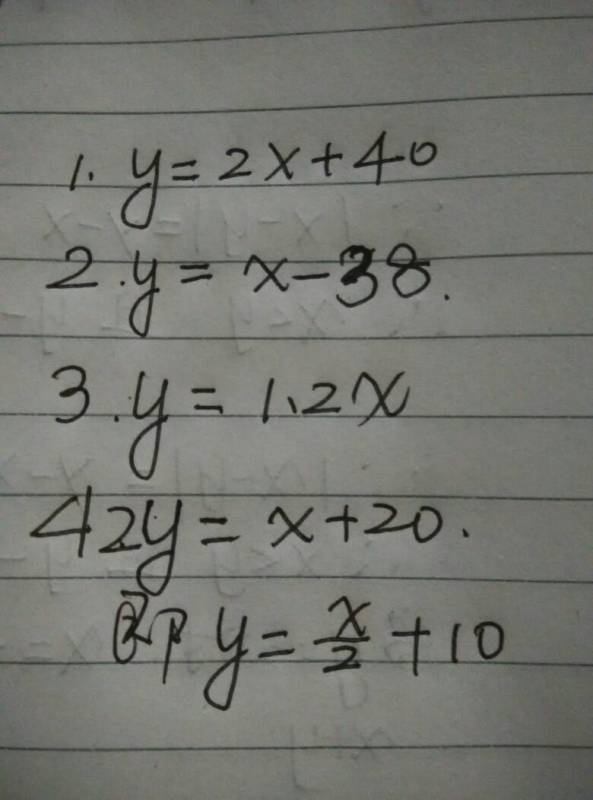 1. y=2x+40
2.y=x-38.
3.y=1.2x
42y=x+20.
即y=x/2+10